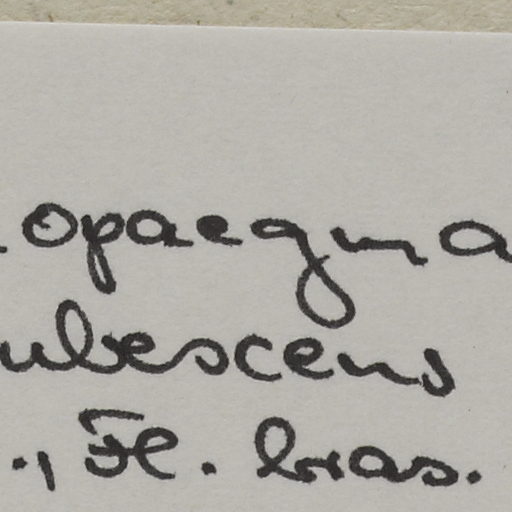 opaegma
ubescens
., Fl. bras.